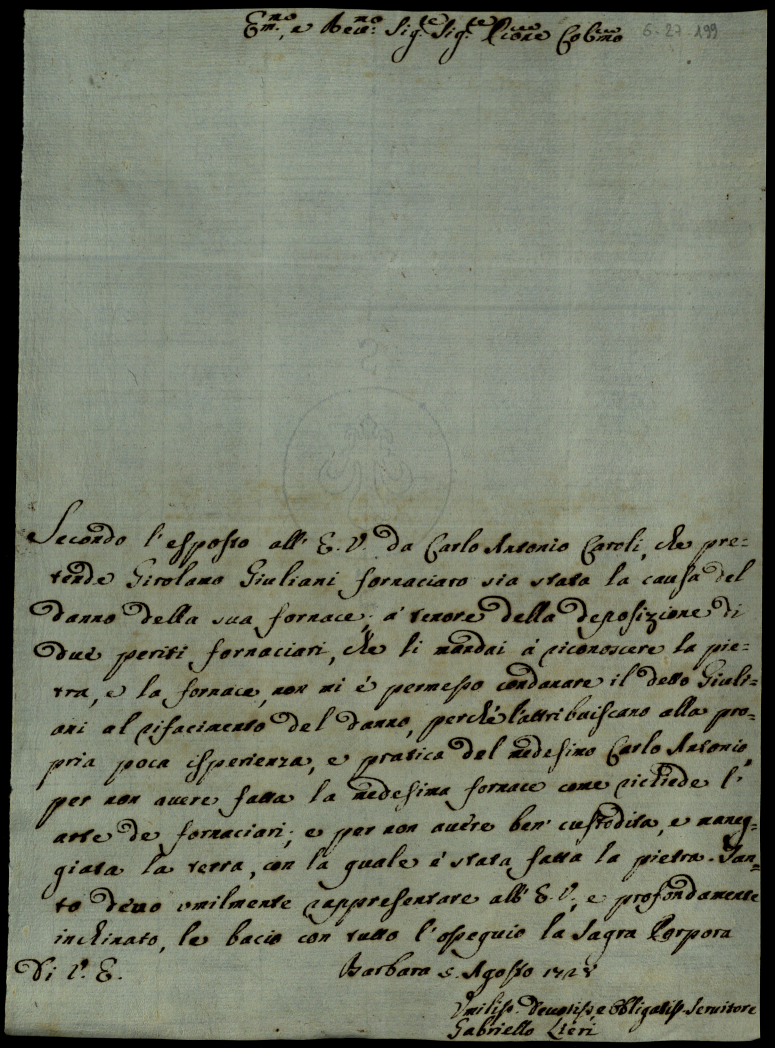 Em.mo, e Rev.mo Sig.re Sig.re P.rone Col.mo 6-27-199
Secondo l'esposto all'E.V. da Carlo Antonio Caroli, che pre=
tende Girolamo Giuliani fornaciaro sia stata la causa del
danno della sua fornace, á tenore della deposizione di
due periti fornaciari, che li mandai á riconoscere la pie=
tra, e la fornace, non mi é permesso condanare il detto Giuli=
ani al rifacimento del danno, perché l'attribuiscano alla pro=
pria poca isperienza, e pratica del medesimo Carlo Antonio
per non avere fatta la medesima fornace come richiede l'
arte de fornaciari; e per non avére ben' custodita, e maneg=
giata la terra, con la quale é stata fatta la pietra. Tan=
to devo umilmente rappresentare all'E.V., e profondamente
inchinato, le bacio con tutto l'ossequio la Sagra Porpora
Di V.E. Barbara Agosto
Umiliss. Devotiss. e Obligatiss. Servitore
Gabriello